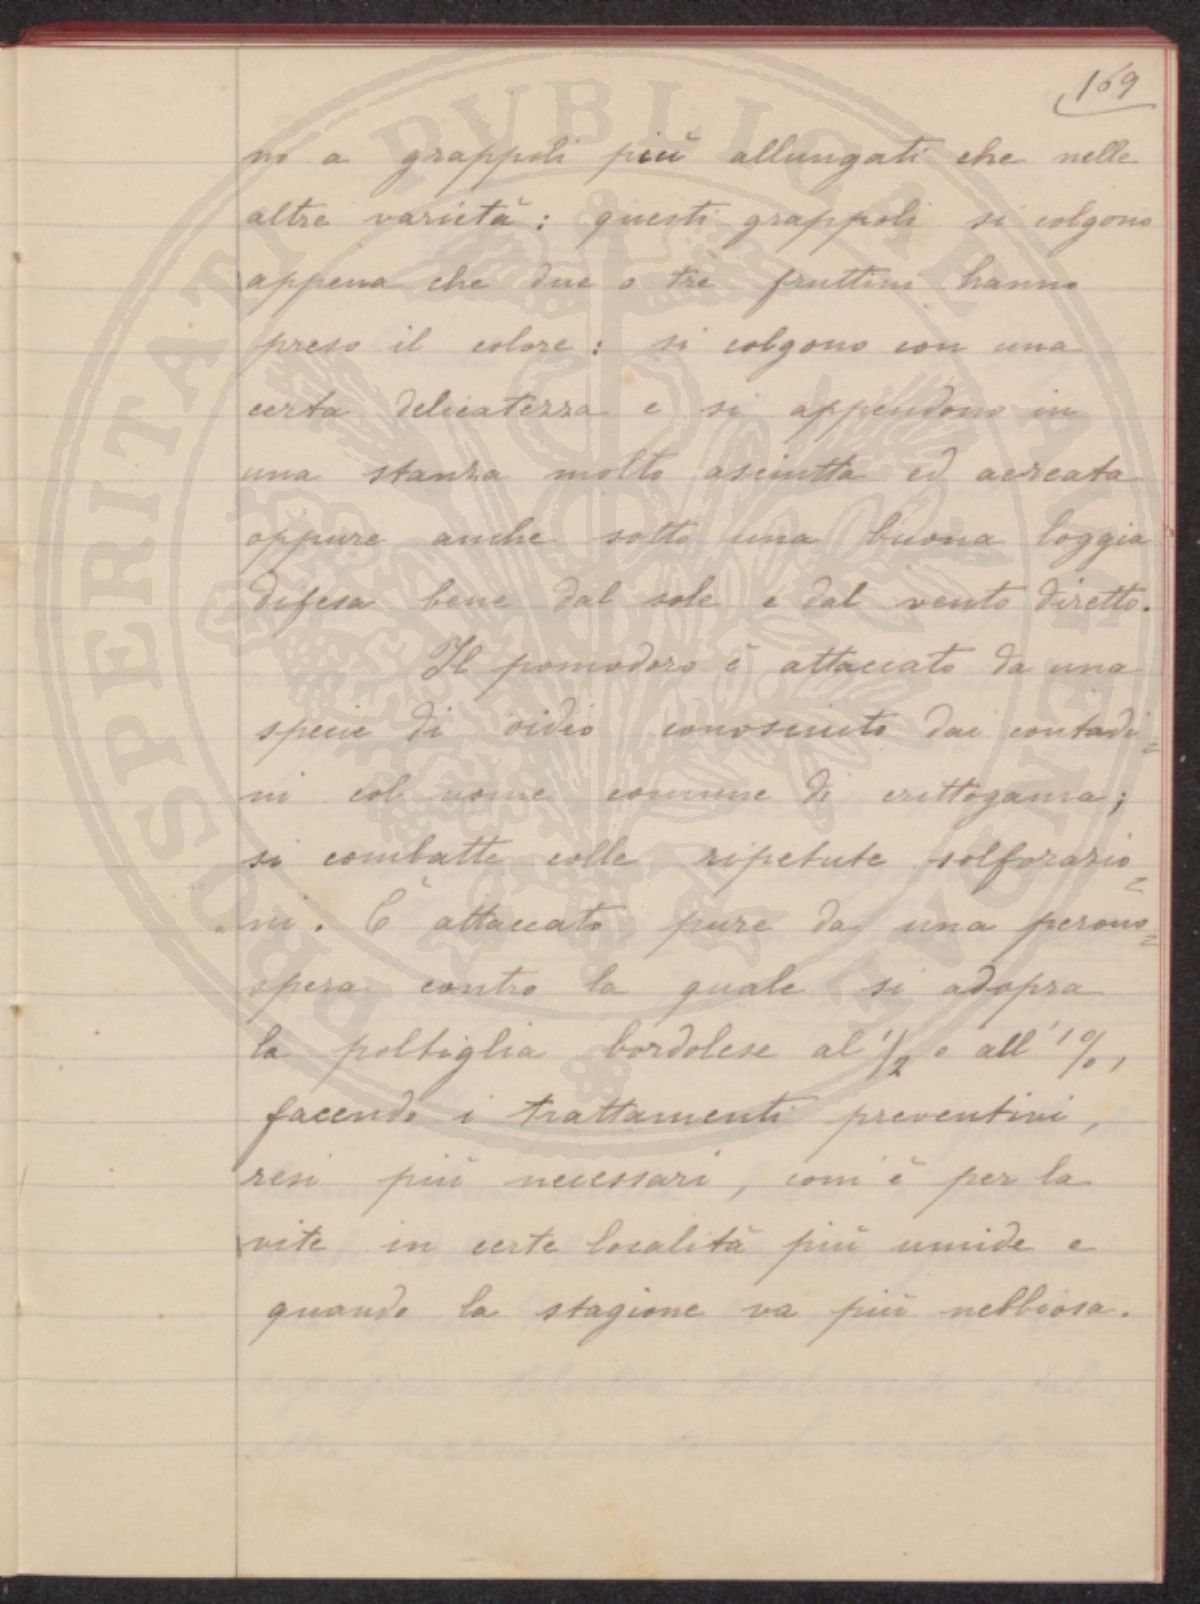 169
no a grappoli più allungati che nelle
altre varietà: questi grappoli si colgono
appena che due o tre fruttini hanno
preso il colore: si colgono con una
certa delicatezza e si appendono in
una stanza molto asciutta ed aereata
oppure anche sotto una buona loggia
difesa bene dal sole e dal vento diretto.
Il pomodoro è attaccato da una
specie di oidio conosciuto dai contadi=
ni col nome comune di crittogama;
si combatte colle ripetute solforazio=
ni. È attaccato pure da una perono=
spera contro la quale si adopra
la poltiglia bordolese al 1/2 o all'1%,
facendo i trattamenti preventivi,
resi più necessari, com'è per la
vite in certe località più umide e
quando la stagione va più nebbiosa.
PROSPERITATI PVBLICAE AVGENDAE